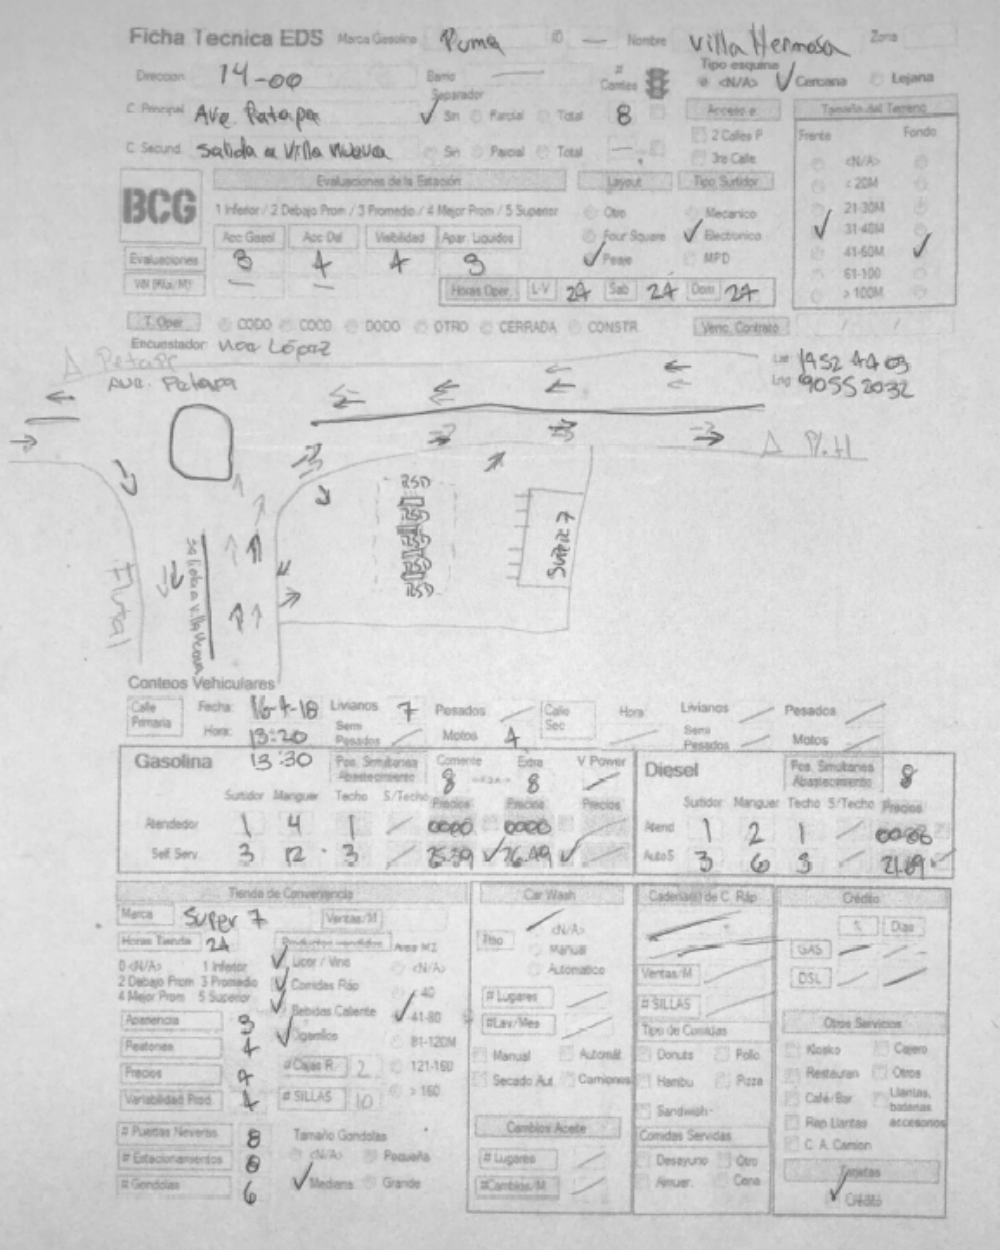 Ficha Tecnica EDS Marca Gasolina Puma ID — Nombre Villa Hermosa Zona
Direccion 14-00 Barrio — # Carriles Tipo esquina <N/A> Cercana Lejana
C. Principal Ave. Petapa Separador Sin Parcial Total 8 Acceso a Tamaño del Terreno
2 Calles P Frente Fondo
C. Secund. Salida a Villa Nueva Sin Parcial Total — 3ra Calle <N/A>
BCG Evaluaciones de la Estación Layout Tipo Surtidor < 20M
1 Inferior / 2 Debajo Prom / 3 Promedio / 4 Mejor Prom / 5 Superior Otro Mecanico 21-30M
Acc Gasol Acc Dsl Visibilidad Apar. Liquidos Four Square Electronico 31-40M
Evaluaciones 3 4 4 3 Peaje MPD 41-60M
— — Horas Oper. L-V 24 Sab 24 Dom 24 61-100
> 100M
T. Oper CODO COCO DODO OTRO CERRADA CONSTR. Venc. Contrato / /
Encuestador López
A Petapa
AVE. Petapa
Lat 1452 44 03
Lng 9055 2032
RSD
RSD
RSD
SUPER 7
Salida a Villa Nueva
Conteos Vehiculares
Calle Primaria Fecha: 16-4-18 Livianos 7 Pesados Calle Sec Hora Livianos Pesados
Hora: 13:20 Semi Pesados Motos 4 Semi Pesados Motos
Gasolina 13:30 Pos. Simultanea Abastecimiento Corriente 8 Extra 8 V Power Diesel Pos. Simultanea Abastecimiento 8
Surtidor Manguer Techo S/Techo Precios Precios Precios Surtidor Manguer Techo S/Techo Precios
Atendedor 1 4 1 0000 0000 Atend 1 2 1
Self Serv. 3 12 3 25.39 26.49 Auto S 3 6 3 21.69
Tienda de Conveniencia Car Wash Cadena(s) de C. Ráp Crédito
Marca Super 7 Ventas/M <N/A> % Dias
Horas Tienda 24 Productos vendidos Area M2 Tipo Manual GAS
0 <N/A> 1 Inferior Licor / Vino <N/A> Automatico Ventas/M DSL
2 Debajo Prom 3 Promedio Comidas Ráp < 40 # Lugares # SILLAS
4 Mejor Prom 5 Superior Bebidas Caliente 41-80 #Lav/Mes Tipo de Comidas Otros Servicios
Apariencia 3 Cigarrillos 81-120M Manual Automát. Donuts Pollo Kiosko Cajero
Peatones 4 # Cajas R. 2 121-160 Secado Aut Camiones Hambu Pizza Restauran Otros
Precios 4 > 160 Sandwich Café/Bar Llantas, baterias accesorios
Variabilidad Prod. 4 # SILLAS 10 Rep Llantas
# Puertas Neveras 8 Tamaño Gondolas Cambios Aceite Comidas Servidas C. A. Camion
# Estacionamientos 8 <N/A> Pequeña # Lugares Desayuno Otro Tarjetas
# Gondolas 6 Mediana Grande #Cambios/M Almuer. Cena Crédito